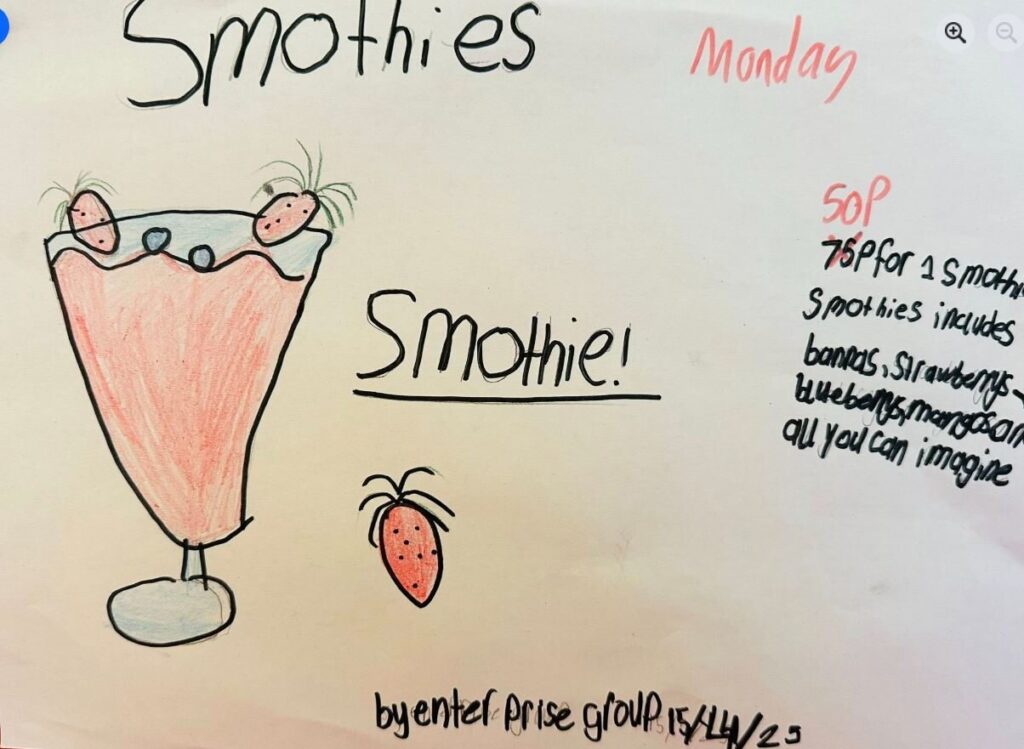 Smothies
Monday
50P
75P for 1 Smothi
Smothies includes
bannas, strawberrys
blueberrys, mangos an
all you can imagine
Smothie!
by enter prise group